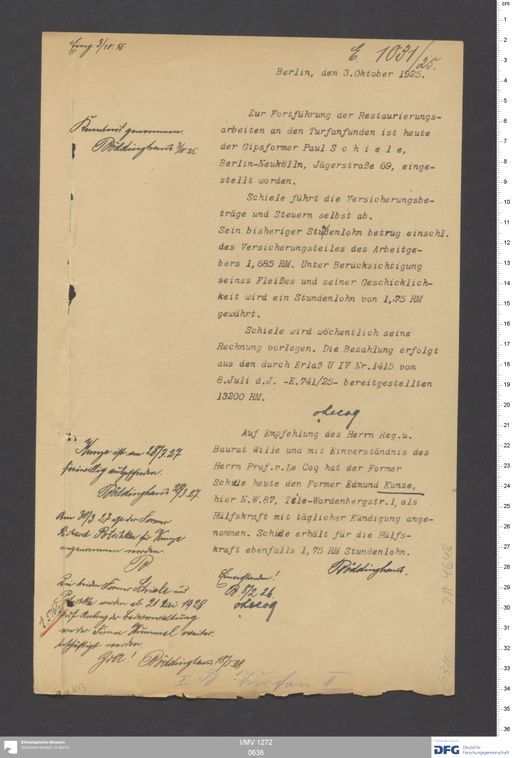 Eing. 3/10 25.
E. 1031/25.
Berlin, den 3.Oktober 1925.
Kenntnis genommen
Böldinghaus
Zur Fortführung der Restaurierungs-
arbeiten an den Turfanfunden ist heute
der Gipsformer Paul S c h i e l e ,
Berlin-Neukölln, Jägerstraße 69, einge-
stellt worden.
Schiele führt die Versicherungsbe-
träge und Steuern selbst ab.
Sein bisheriger Stundenlohn betrug einschl.
des Versicherungsteiles des Arbeitge-
bers 1,685 RM. Unter Berücksichtigung
seines Fleißes und seiner Geschicklich-
keit wird ein Stundenlohn von 1,75 RM
gewährt.
Schiele wird wöchentlich seine
Rechnung vorlegen. Die Bezahlung erfolgt
aus den durch Erlaß U IV Nr.1415 vom
8.Juli d.J. -E.741/25- bereitgestellten
13200 RM.
vLecoq
Auf Empfehlung des Herrn Reg.u.
Baurat Wille und mit Einverständnis des
Herrn Prof.v.Le Coq hat der Former
Schiele heute den Former Edmund Kunze,
hier N.W.87, Tile-Wardenbergstr.1, als
Hülfskraft mit täglicher Kündigung ange-
nommen. Schiele erhält für die Hülfs-
kraft ebenfalls 1,75 RM Stundenlohn.
Böldinghaus.
Einverstanden!
B 5/2 26
vLecoq
Kunze ist am 28/2 27
freiwillig ausgeschieden.
Böldinghaus
Am 30/3 27 ist der Former
für Kunze
angenommen worden.
B
Die beiden Former Schiele und
werden ab 21 Mai 1928
auf Antrag der Bauverwaltung
von der Firma weiter
beschäftigt werden.
Böldinghaus
Turfan II
I/MV 1272
0636
Ethnologisches Museum
Staatliche Museen zu Berlin
DFG Deutsche
Forschungsgemeinschaft